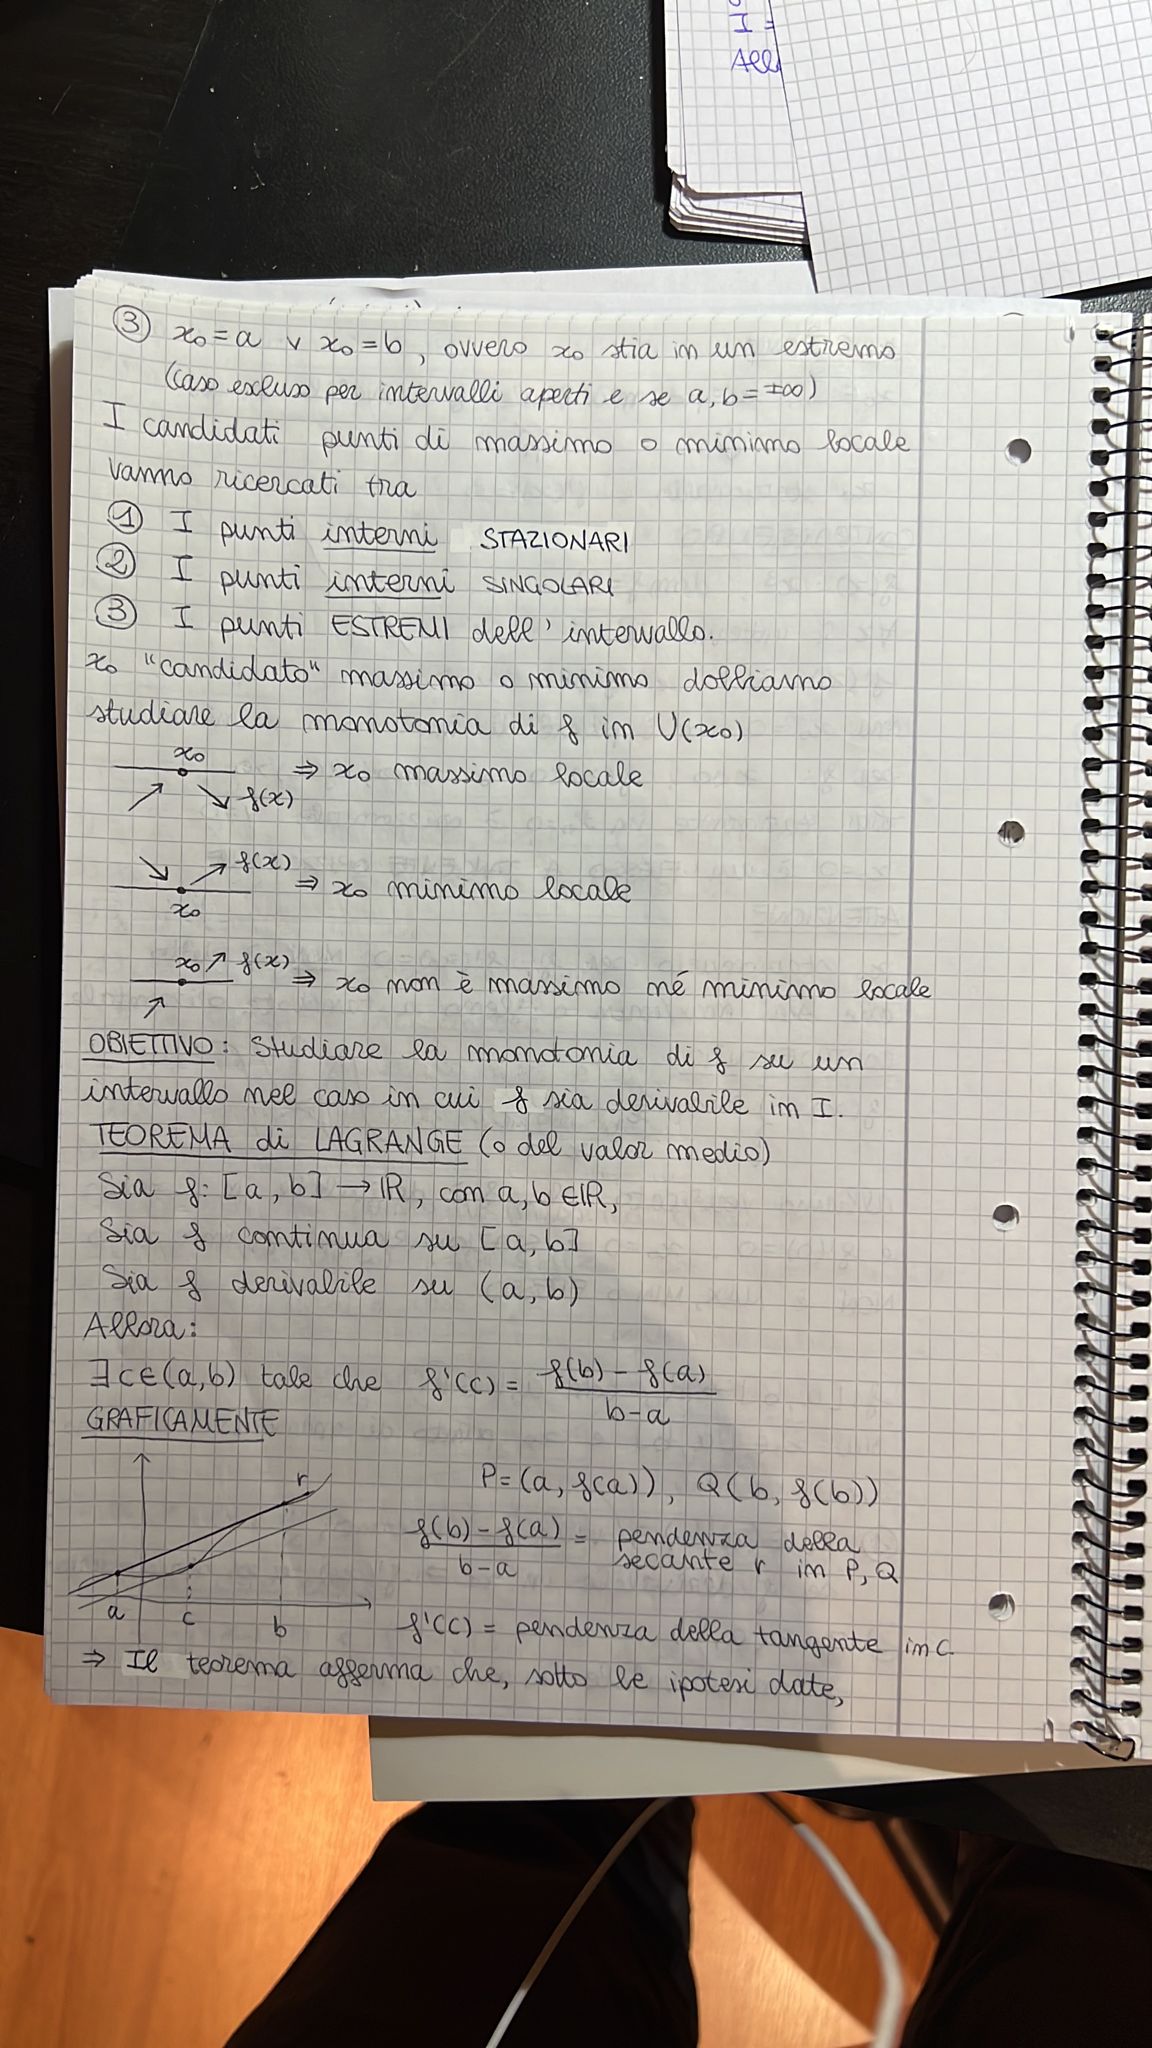 I =
All
③ x₀ = a ∨ x₀ = b, ovvero x₀ stia in un estremo
(caso escluso per intervalli aperti e se a, b = ±∞)
I candidati punti di massimo o minimo locale
vanno ricercati tra
① I punti interni STAZIONARI
② I punti interni SINGOLARI
③ I punti ESTREMI dell' intervallo.
x₀ "candidato" massimo o minimo dobbiamo
studiare la monotonia di f in U(x₀)
x₀
⇒ x₀ massimo locale
↗ ↘ f(x)
↘ ↗ f(x)
⇒ x₀ minimo locale
x₀
x₀ ↗ f(x)
⇒ x₀ non è massimo né minimo locale
↗
OBIETTIVO: Studiare la monotonia di f su un
intervallo nel caso in cui f sia derivabile in I.
TEOREMA di LAGRANGE (o del valor medio)
Sia f: [a, b] → ℝ, con a, b ∈ ℝ,
Sia f continua su [a, b]
Sia f derivabile su (a, b)
Allora:
∃ c ∈ (a, b) tale che f'(c) = f(b) - f(a) / b - a
GRAFICAMENTE
r
P = (a, f(a)), Q(b, f(b))
f(b) - f(a) / b - a = pendenza della
secante r in P, Q
a c b
f'(c) = pendenza della tangente in c
⇒ Il teorema afferma che, sotto le ipotesi date,